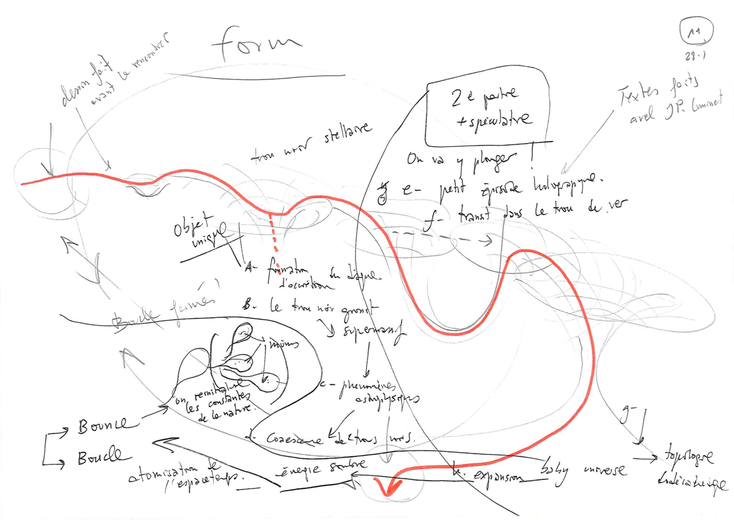 form
11
29.1
dessin fait
avant la rencontre
Textes faits
avec JP. Luminet
2e partie
+ spéculative
On va y plonger !
trou noir stellaire
e- petit épisode holographique.
f- transit dans le trou de ver
Objet
unique
A- formation du disque
d'accrétion
B- le trou noir grossit
supermassif
Boucle fermée
c- phénomènes
astrophysiques
d- Coalescence de trous noirs.
on réinitialise
les constantes
de la nature.
Bounce
Boucle
atomisation de
l'espacetemps.
énergie sombre
expansion
baby universe
g-
topologie